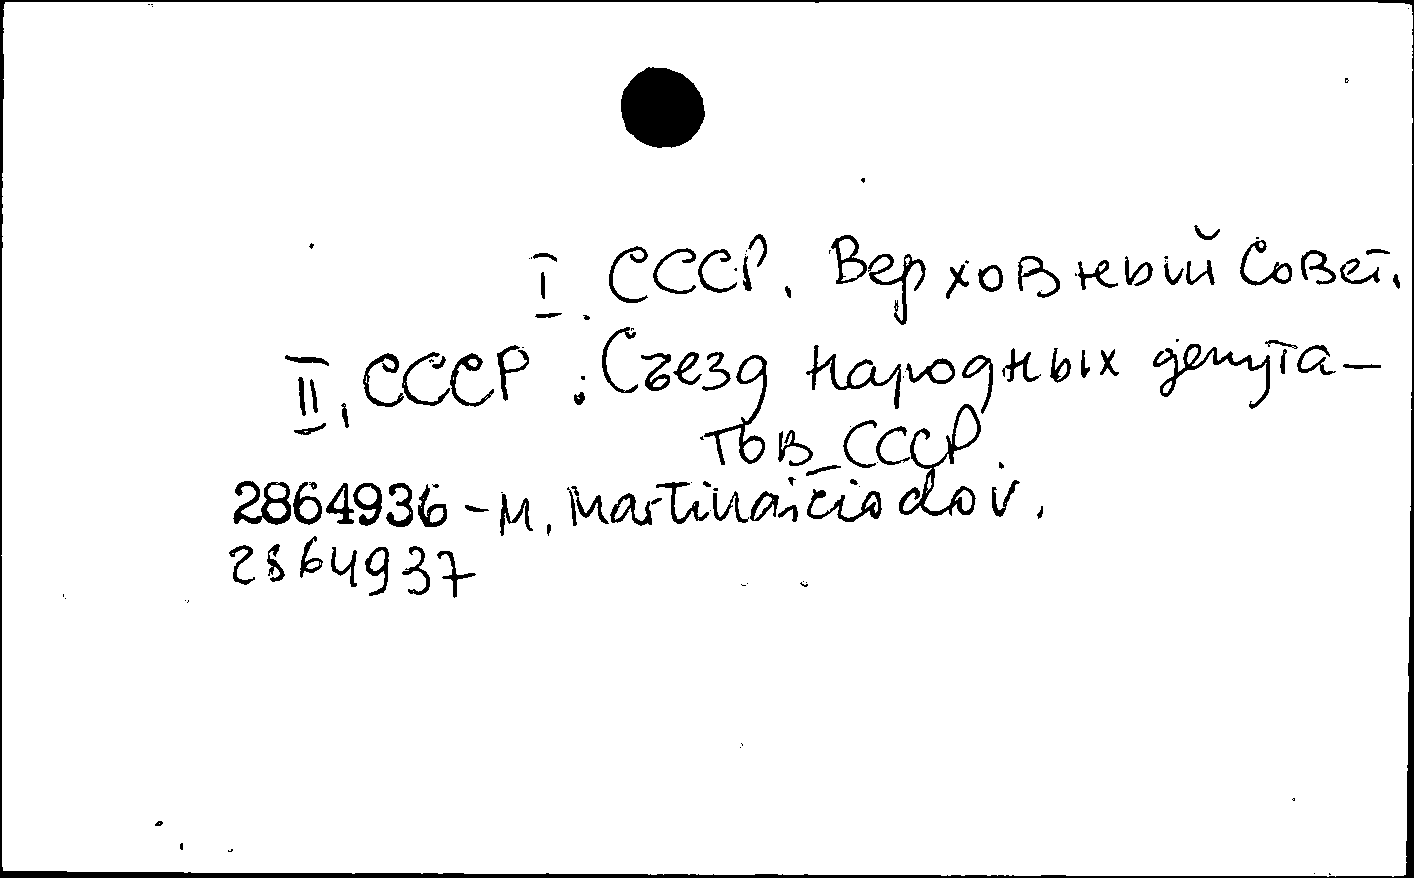 I. СССР. Верховный Совет.
II. СССР. Съезд народных депута-
тов СССР.
2864936 - M. Martinaičio dov.
2864937